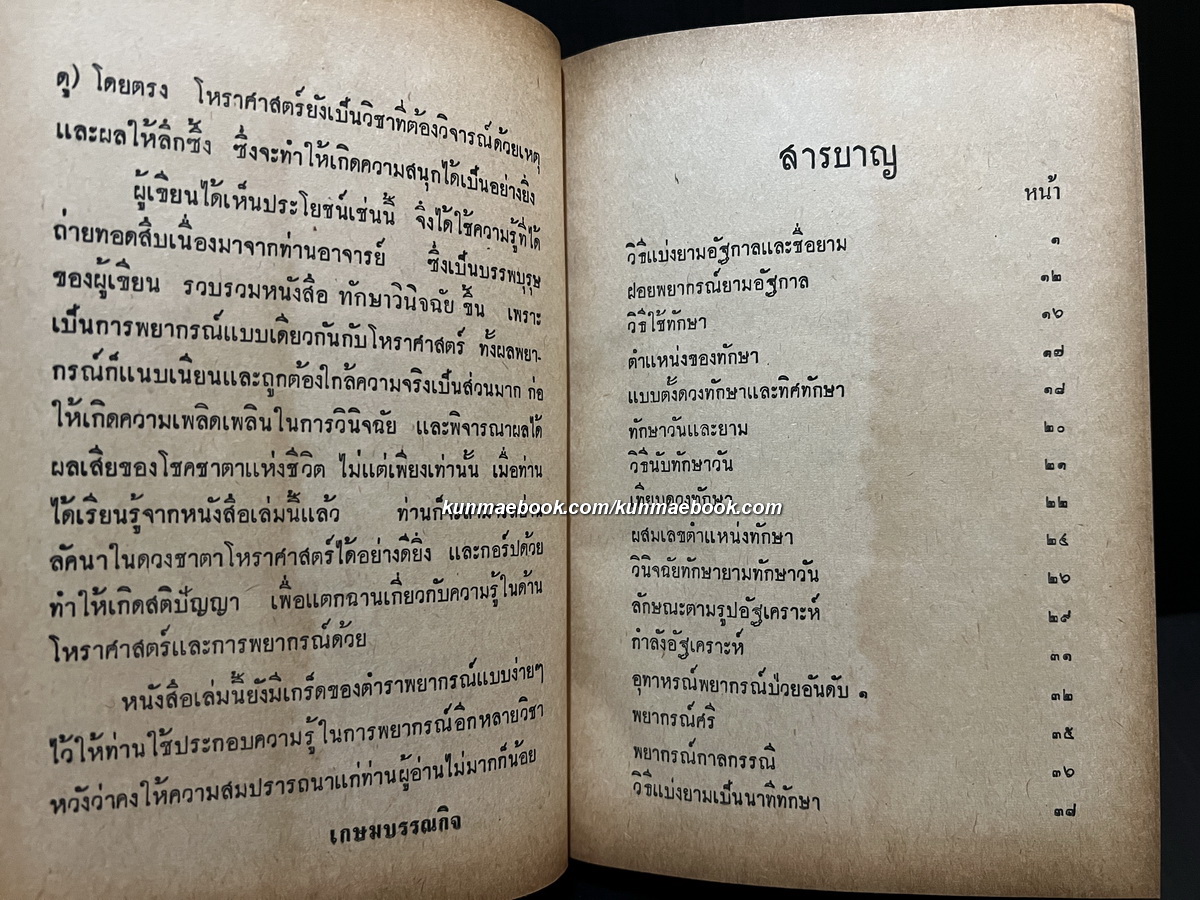 ดู) โดยตรง โหราศาสตร์ยังเป็นวิชาที่ต้องวิจารณ์ด้วยเหตุ
และผลให้ลึกซึ้ง ซึ่งจะทำให้เกิดความสนุกได้เป็นอย่างยิ่ง
ผู้เขียนได้เห็นประโยชน์เช่นนี้ จึงได้ใช้ความรู้ที่ได้
ถ่ายทอดสืบเนื่องมาจากท่านอาจารย์ ซึ่งเป็นบรรพบุรุษ
ของผู้เขียน รวบรวมหนังสือ ทักษาวินิจฉัย ขึ้น เพราะ
เป็นการพยากรณ์แบบเดียวกันกับโหราศาสตร์ ทั้งผลพยา-
กรณ์ก็แนบเนียนและถูกต้องใกล้ความจริงเป็นส่วนมาก ก่อ
ให้เกิดความเพลิดเพลินในการวินิจฉัย และพิจารณาผลได้
ผลเสียของโชคชาตาแห่งชีวิต ไม่แต่เพียงเท่านั้น เมื่อท่าน
ได้เรียนรู้จากหนังสือเล่มนี้แล้ว
ลัคนาในดวงชาตาโหราศาสตร์ได้อย่างดียิ่ง และกอร์ปด้วย
ทำให้เกิดสติปัญญา เพื่อแตกฉานเกี่ยวกับความรู้ในด้าน
โหราศาสตร์และการพยากรณ์ด้วย
หนังสือเล่มนี้ยังมีเกร็ดของตำราพยากรณ์แบบง่ายๆ
ไว้ให้ท่านใช้ประกอบความรู้ในการพยากรณ์อีกหลายวิชา
หวังว่าคงให้ความสมปรารถนาแก่ท่านผู้อ่านไม่มากก็น้อย
เกษมบรรณกิจ
สารบาญ
หน้า
วิธีแบ่งยามอัฐกาลและชื่อยาม ๑
ฝอยพยากรณ์ยามอัฐกาล ๑๒
วิธีใช้ทักษา ๑๖
ตำแหน่งของทักษา ๑๗
แบบตั้งดวงทักษาและทิศทักษา ๑๘
ทักษาวันและยาม ๒๐
วิธีนับทักษาวัน ๒๑
เทียบดวงทักษา ๒๒
ผสมเลขตำแหน่งทักษา ๒๕
วินิจฉัยทักษายามทักษาวัน ๒๖
ลักษณะตามรูปอัฐเคราะห์ ๒๙
กำลังอัฐเคราะห์ ๓๑
อุทาหรณ์พยากรณ์ป่วยอันดับ ๑ ๓๒
พยากรณ์ศรี ๓๕
พยากรณ์กาลกรรณี ๓๖
วิธีแบ่งยามเป็นนาทีทักษา ๓๗
kunmaebook.com/kunmaebook.com